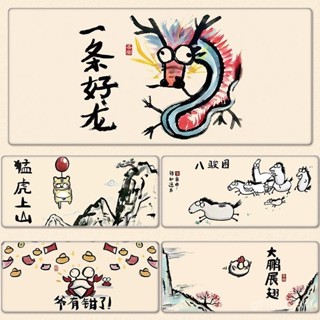 一条好龙
猛虎上山
八骏图
爷有钳了!
大鹏展翅